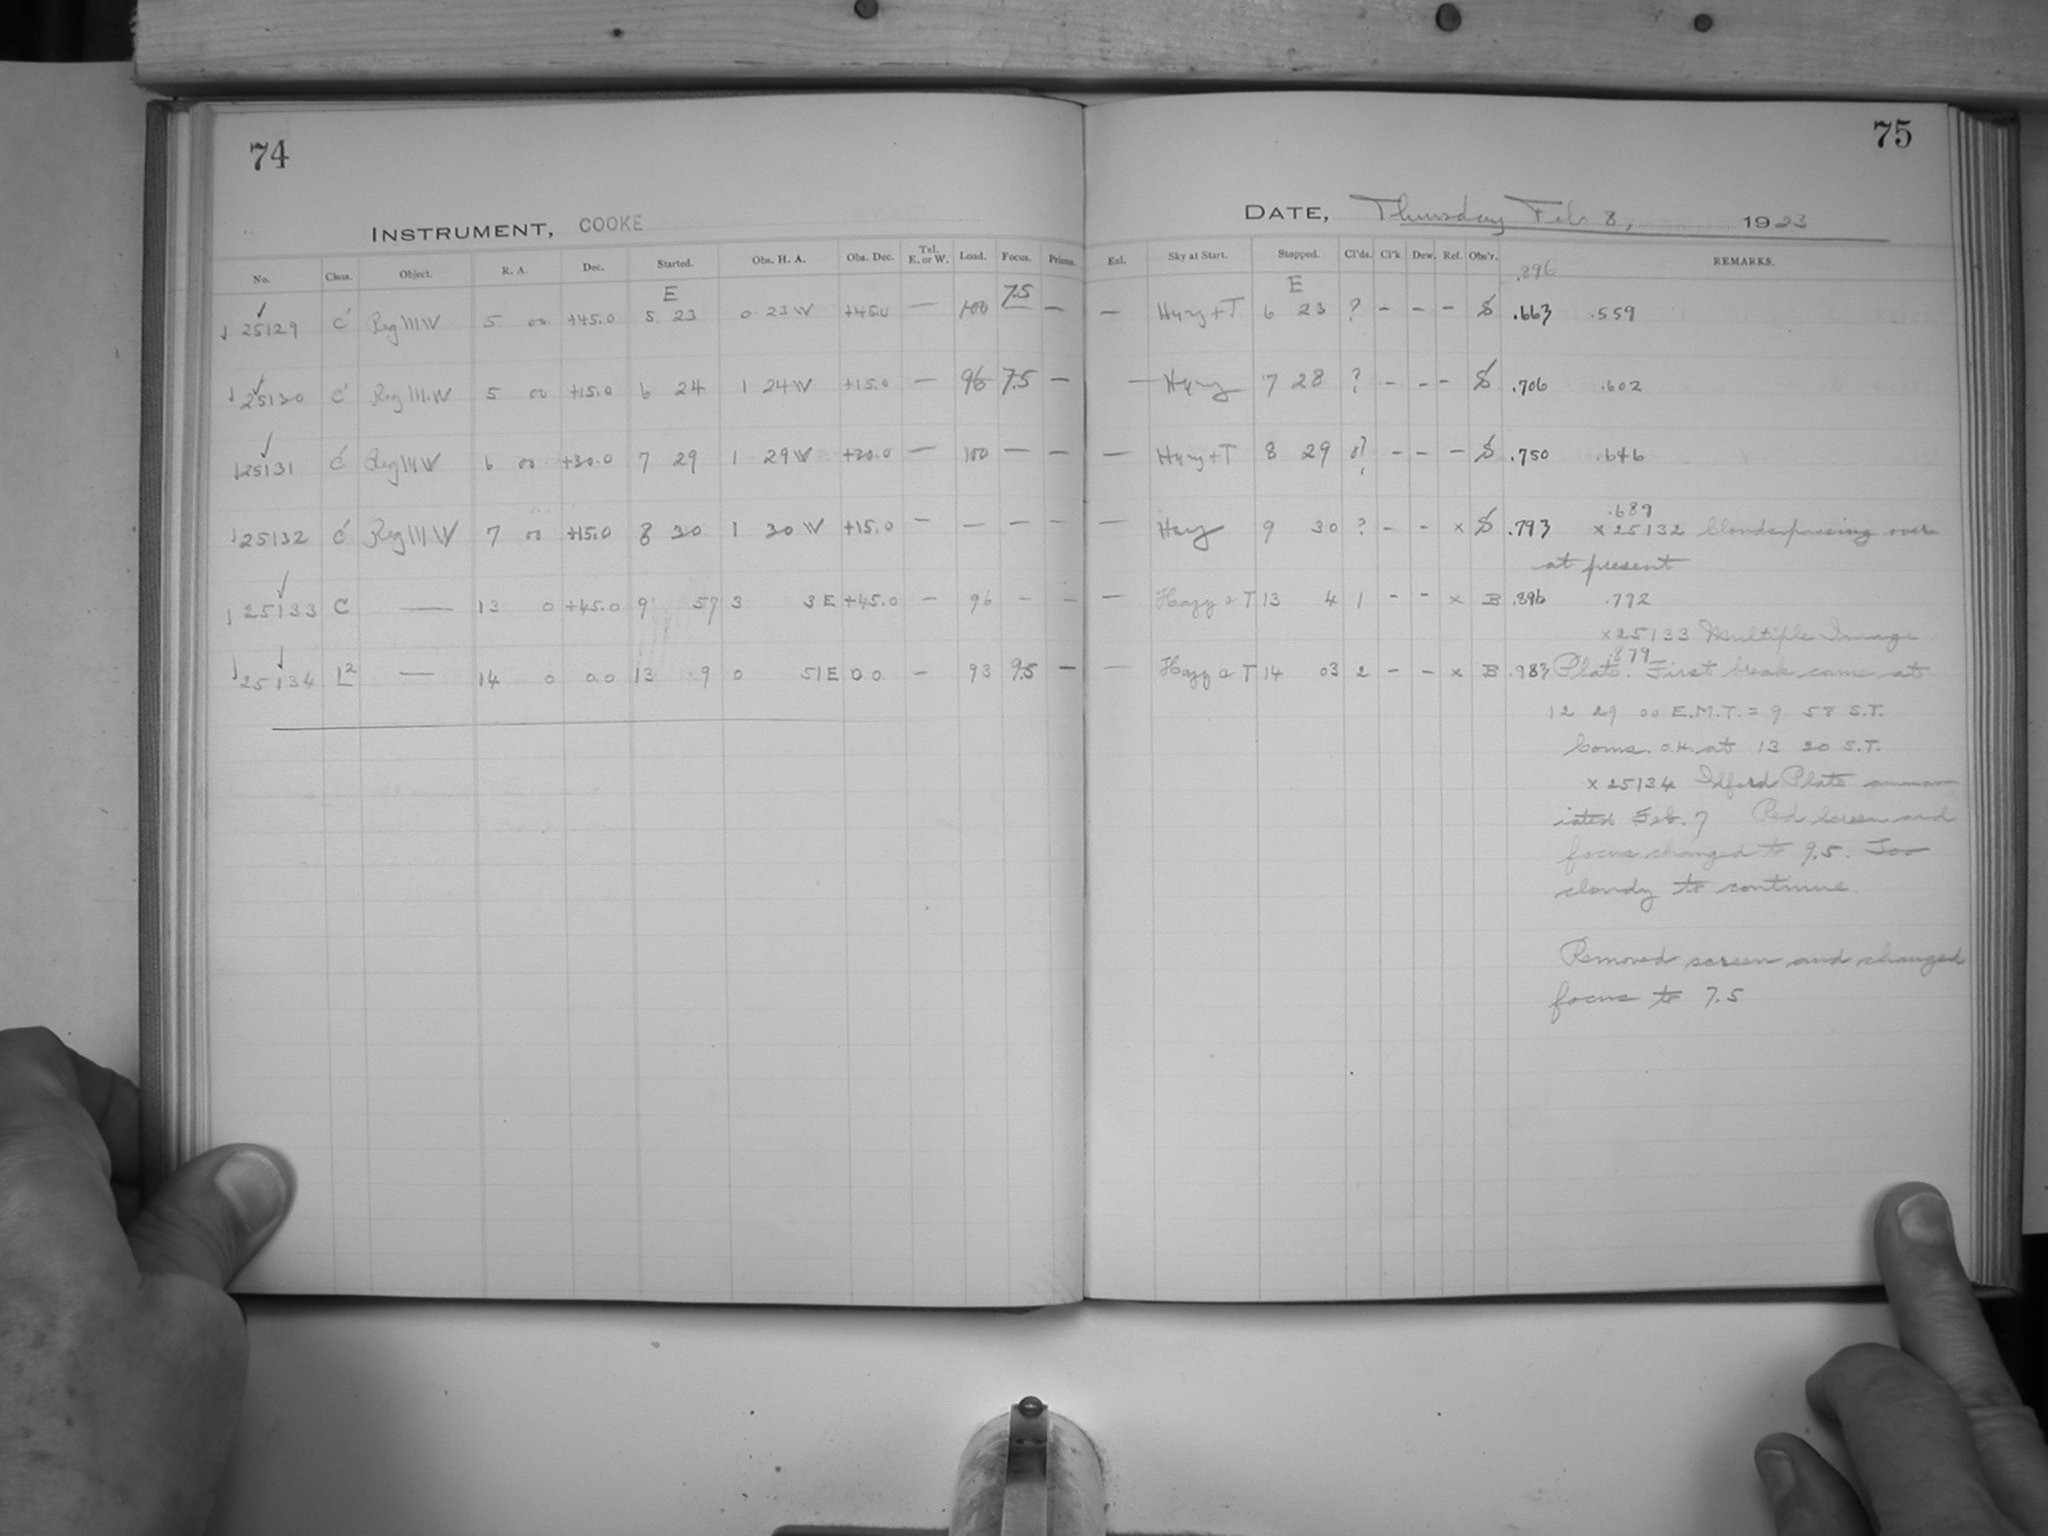 74
75
INSTRUMENT, COOKE
DATE, Thursday Feb 8, 1923
No. Class. Object. R. A. Dec. Started. Obs. H. A. Obs. Dec. Tel. E. or W. Load. Focus. Prisms.
Exl. Sky at Start. Stopped. Cl'ds. Cl'k. Dew. Ref. Obs'r. REMARKS.
.896
E 7.5 E
✓ 25129 C' Reg III W 5 00 +45.0 5 23 0 23 W +45.0 — 100 — — Hazy + T 6 23 ? – – – S .663 .559
✓ 25130 C' Reg III.W 5 00 +15.0 6 24 1 24 W +15.0 — 96 7.5 — — Hazy 7 28 ? – – – S .706 .602
✓ 25131 C' Reg III W 6 00 +30.0 7 29 1 29 W +30.0 — 100 — — — Hazy + T 8 29 ? – – – S .750 .646
.689
25132 C' Reg III W 7 00 +15.0 8 30 1 30 W +15.0 — — — — — Hazy 9 30 ? – – x S .793 x 25132 Clouds passing over
at present
✓ 25133 C — 13 0 +45.0 9 57 3 3 E +45.0 – 96 – – – Hazy & T 13 4 1 – – x B .896 .792
x 25133 Multiple Image
.879
✓ 25134 L² — 14 0 0.0 13 9 0 51 E 0.0. – 93 9.5 – – Hazy & T 14 03 2 – – x B .983 Plate. First break came at
12 29 00 E.M.T. = 9 58 S.T.
Coms. O.K. at 13 20 S.T.
x 25134 Ilford Plate ammon
iated Feb. 7 Red Screen and
focus changed to 9.5. Too
cloudy to continue.
Removed screen and changed
focus to 7.5